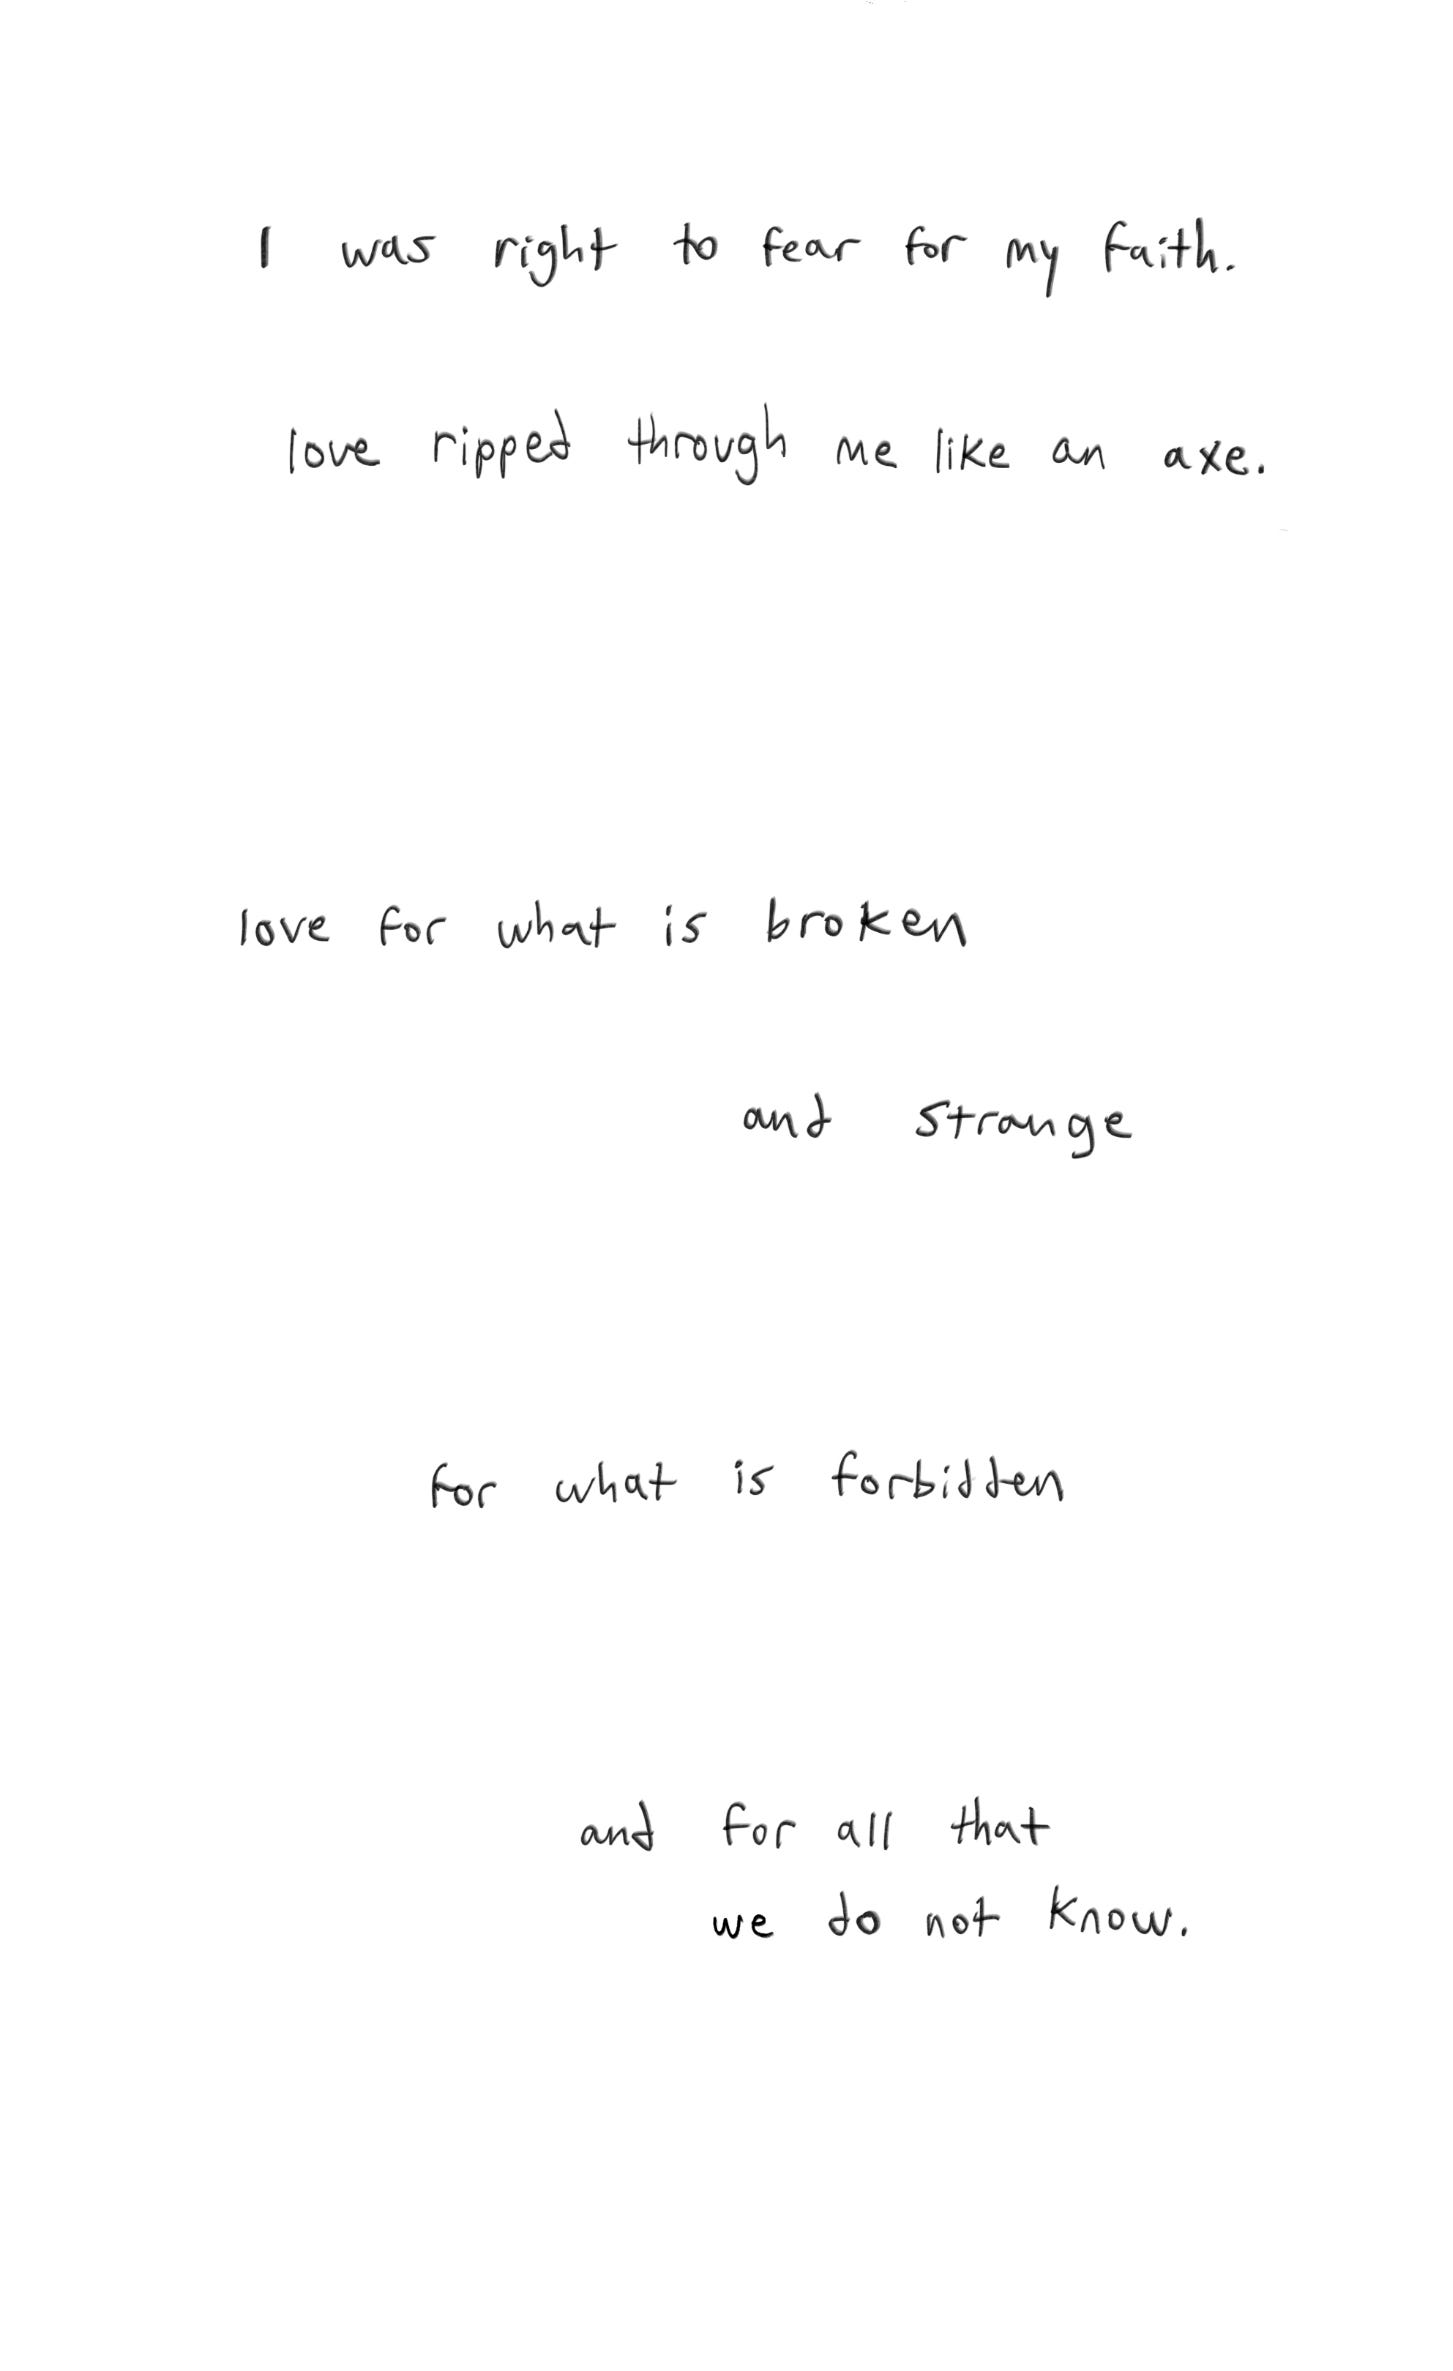 I was right to fear for my faith.
love ripped through me like an axe.
love for what is broken
and strange
for what is forbidden
and for all that
we do not know.